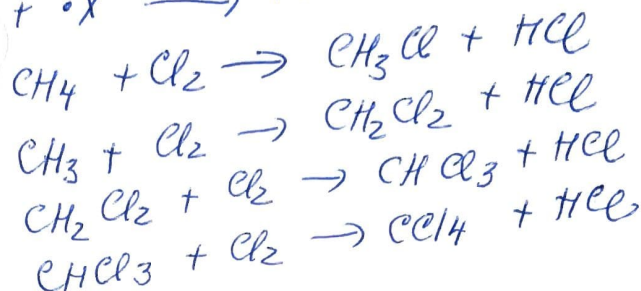 + •X →
CH4 + Cl2 → CH3Cl + HCl
CH3 + Cl2 → CH2Cl2 + HCl
CH2Cl2 + Cl2 → CHCl3 + HCl
CHCl3 + Cl2 → CCl4 + HCl